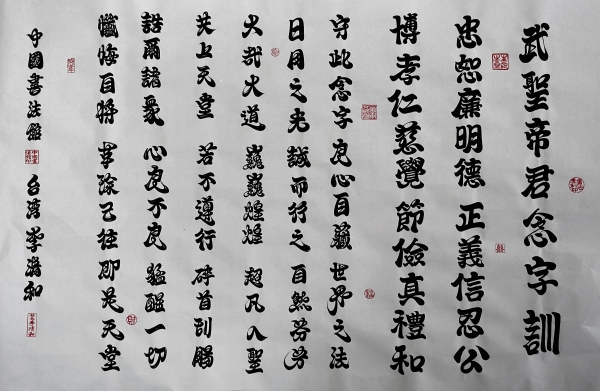 武聖帝君念字訓
忠恕廉明德 正義信忍公
博孝仁慈覺 節儉真禮和
守此念字 良心自藏 世界之法
日月之光 誠而行之 自然芬芳
大哉大道 巍巍煌煌 超凡入聖
共上天堂 若不遵行 碎首刳腸
誥爾諸 心良不良 猛醒一切
懺悔自將 罪滌已往 即是天堂
中國書法 台灣 李清和